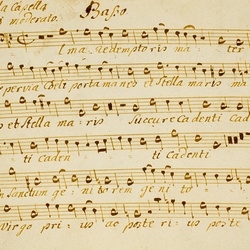 la Capella Baßo
moderato.
lma Redemptoris ma: ter
pervia Cæli porta manes et Stella maris ma
et Stella ma: ris Succurre Cadenti Cad
ti caden: ti Cadenti
Sanctum ge: ni to rem ge ni to:
Virgo pri: us ac poste ri: us poste